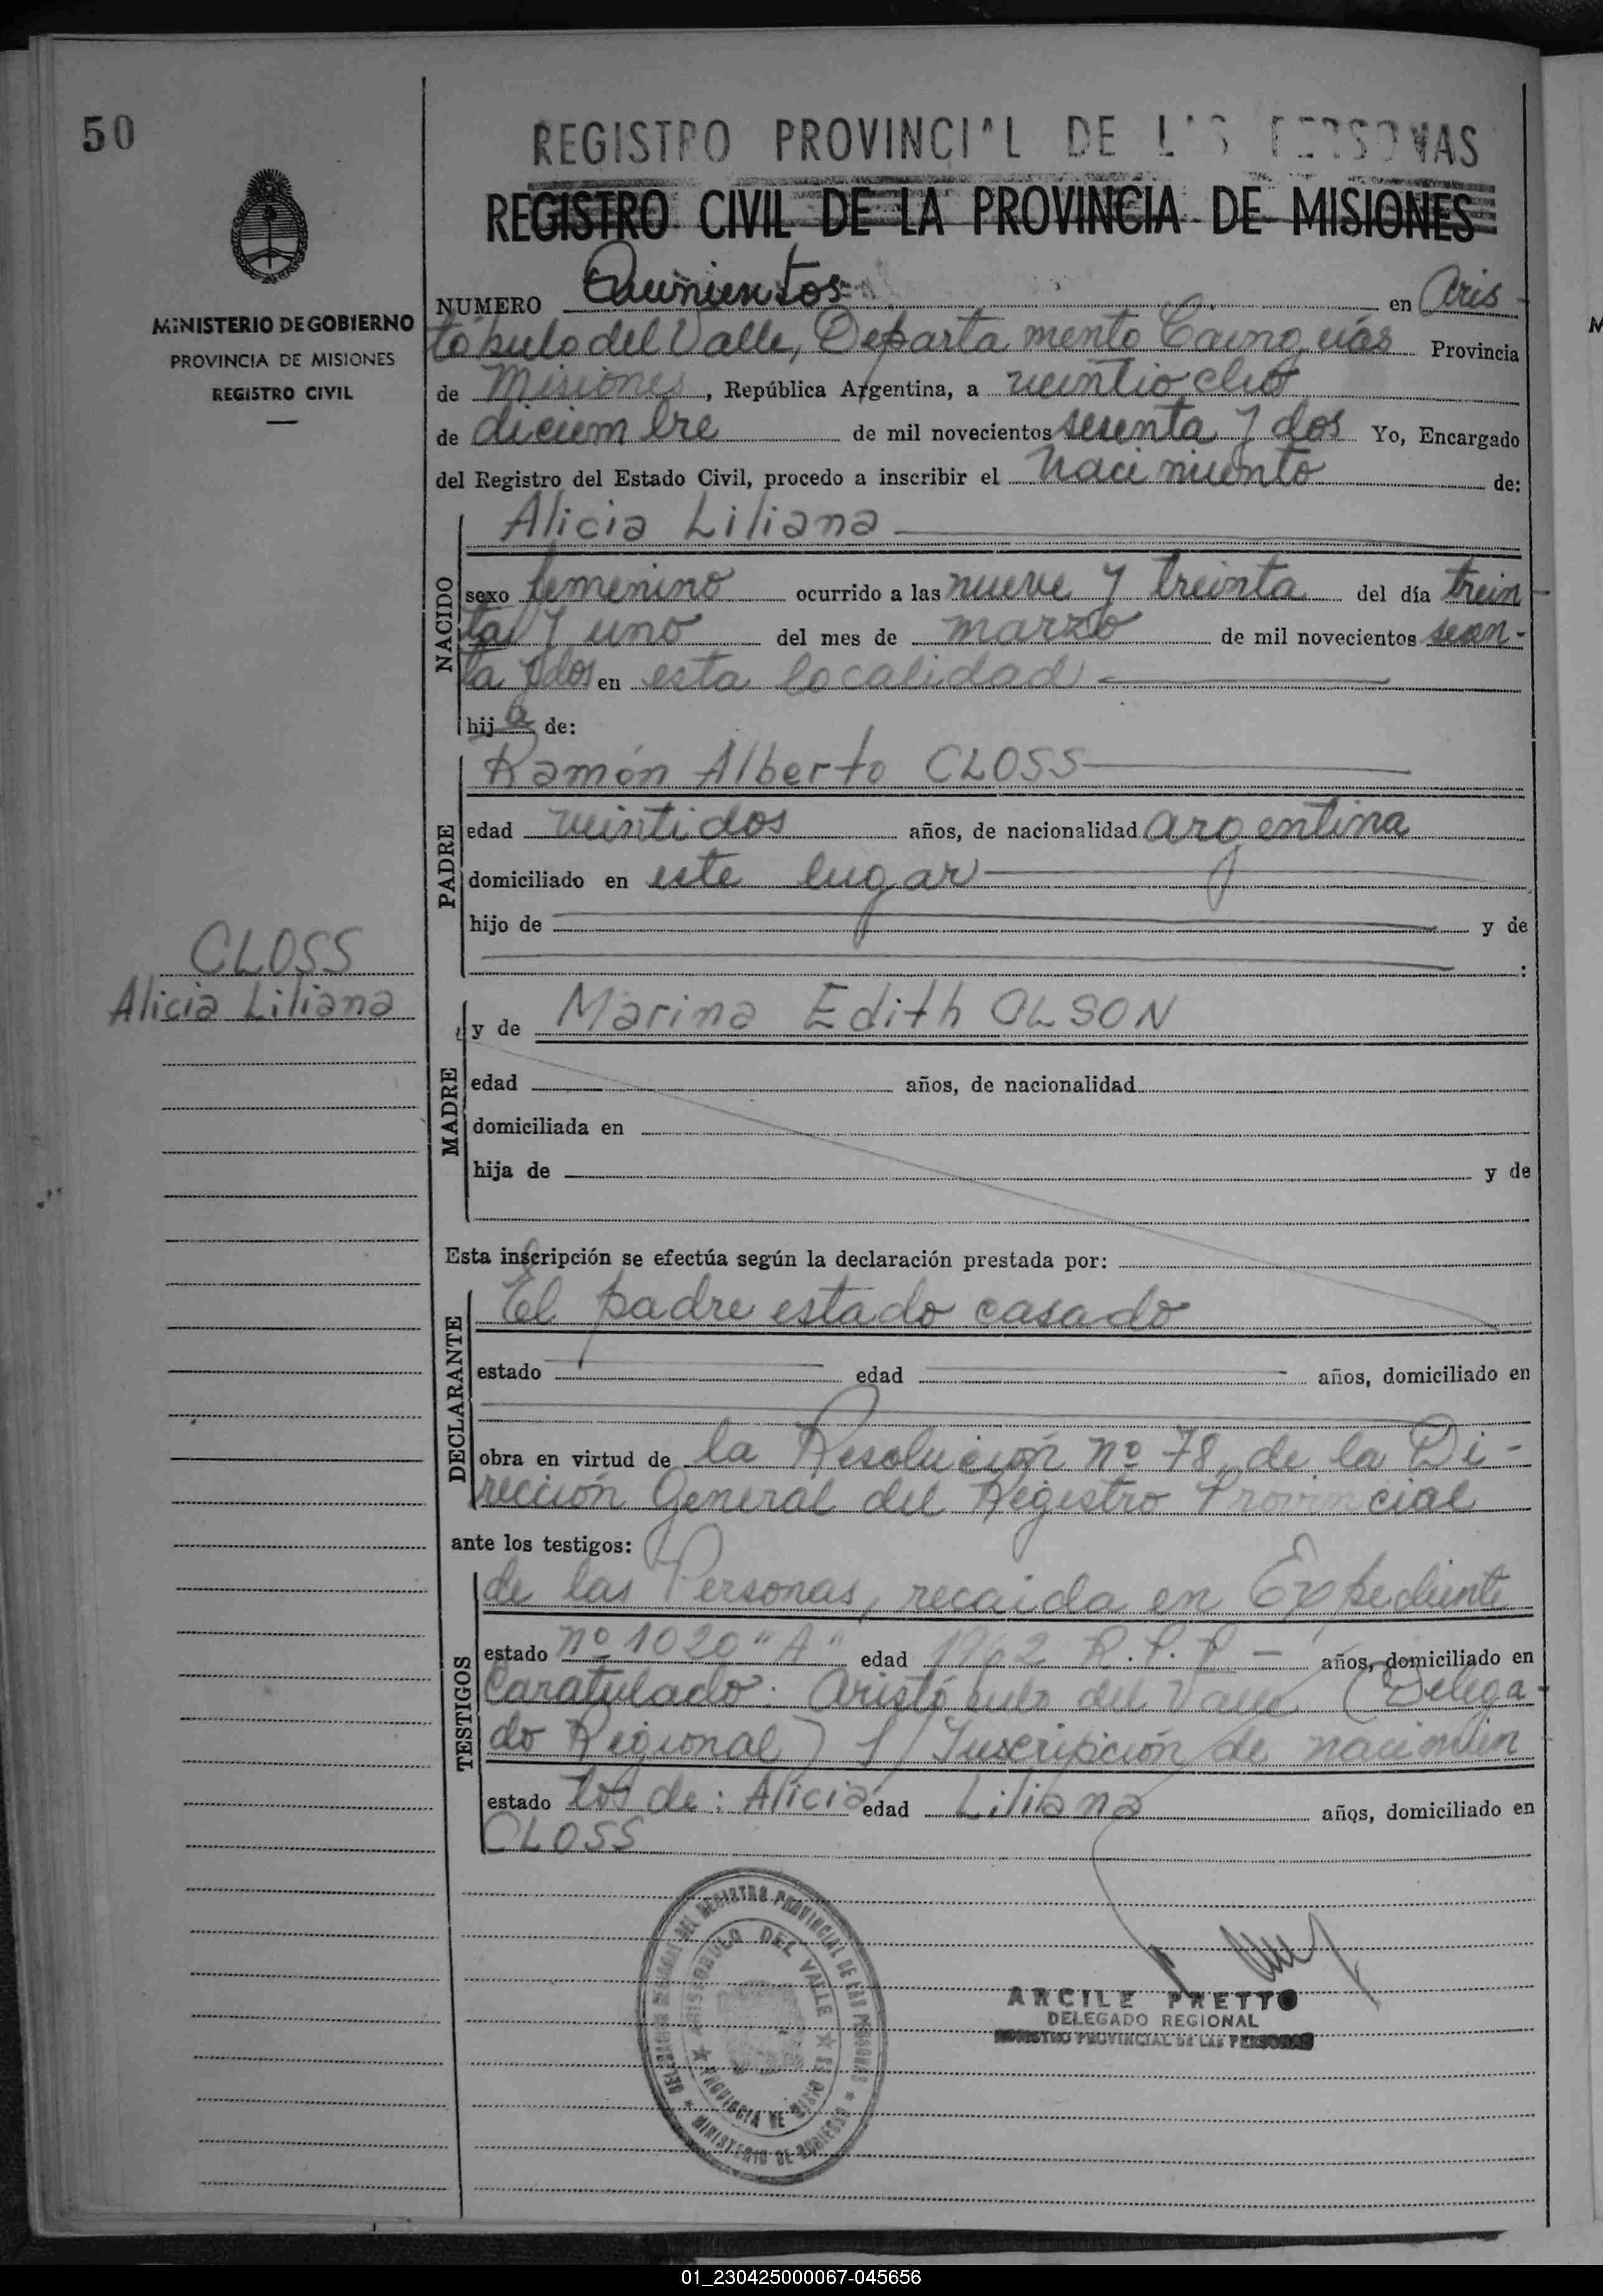 50
REGISTRO PROVINCIAL DE LAS PERSONAS
REGISTRO CIVIL DE LA PROVINCIA DE MISIONES
MINISTERIO DE GOBIERNO
PROVINCIA DE MISIONES
REGISTRO CIVIL
NUMERO Quinientos en Aris
tóbulo del Valle, Departamento Cainguás Provincia
de Misiones, República Argentina, a veintiocho
de diciembre de mil novecientos sesenta y dos Yo, Encargado
del Registro del Estado Civil, procedo a inscribir el nacimiento de:
NACIDO
Alicia Liliana
sexo femenino ocurrido a las nueve y treinta del día trein-
ta y uno del mes de marzo de mil novecientos sesen-
ta y dos en esta localidad
hija de:
PADRE
Ramón Alberto CLOSS
edad veintidos años, de nacionalidad argentina
domiciliado en este lugar
hijo de y de
:
CLOSS
Alicia Liliana
MADRE
y de Marina Edith OLSON
edad años, de nacionalidad
domiciliada en
hija de y de
Esta inscripción se efectúa según la declaración prestada por:
DECLARANTE
El padre estado casado
estado edad años, domiciliado en
obra en virtud de la Resolución nº 78, de la Di-
rección General del Registro Provincial
ante los testigos:
TESTIGOS
de las Personas, recaida en Expediente
estado nº 1020 "A" edad 1962 R.P.P - años, domiciliado en
Caratulado: Aristóbulo del Valle (Delega-
do Regional) s/ Inscripción de nacimien
estado tos de: Alicia edad Liliana años, domiciliado en
CLOSS
DEL REGISTRO PROVINCIAL DE LAS PERSONAS
ARISTOBULO DEL VALLE
PROVINCIA DE MISIONES
MINISTERIO DE GOBIERNO
ARCILE PRETTO
DELEGADO REGIONAL
REGISTRO PROVINCIAL DE LAS PERSONAS
01_230425000067-045656